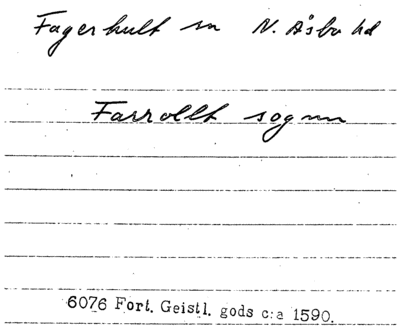 Fagerhult sn N. Åsbo hd
Farrollt sognn
6076 Fort. Geistl. gods c:a 1590.